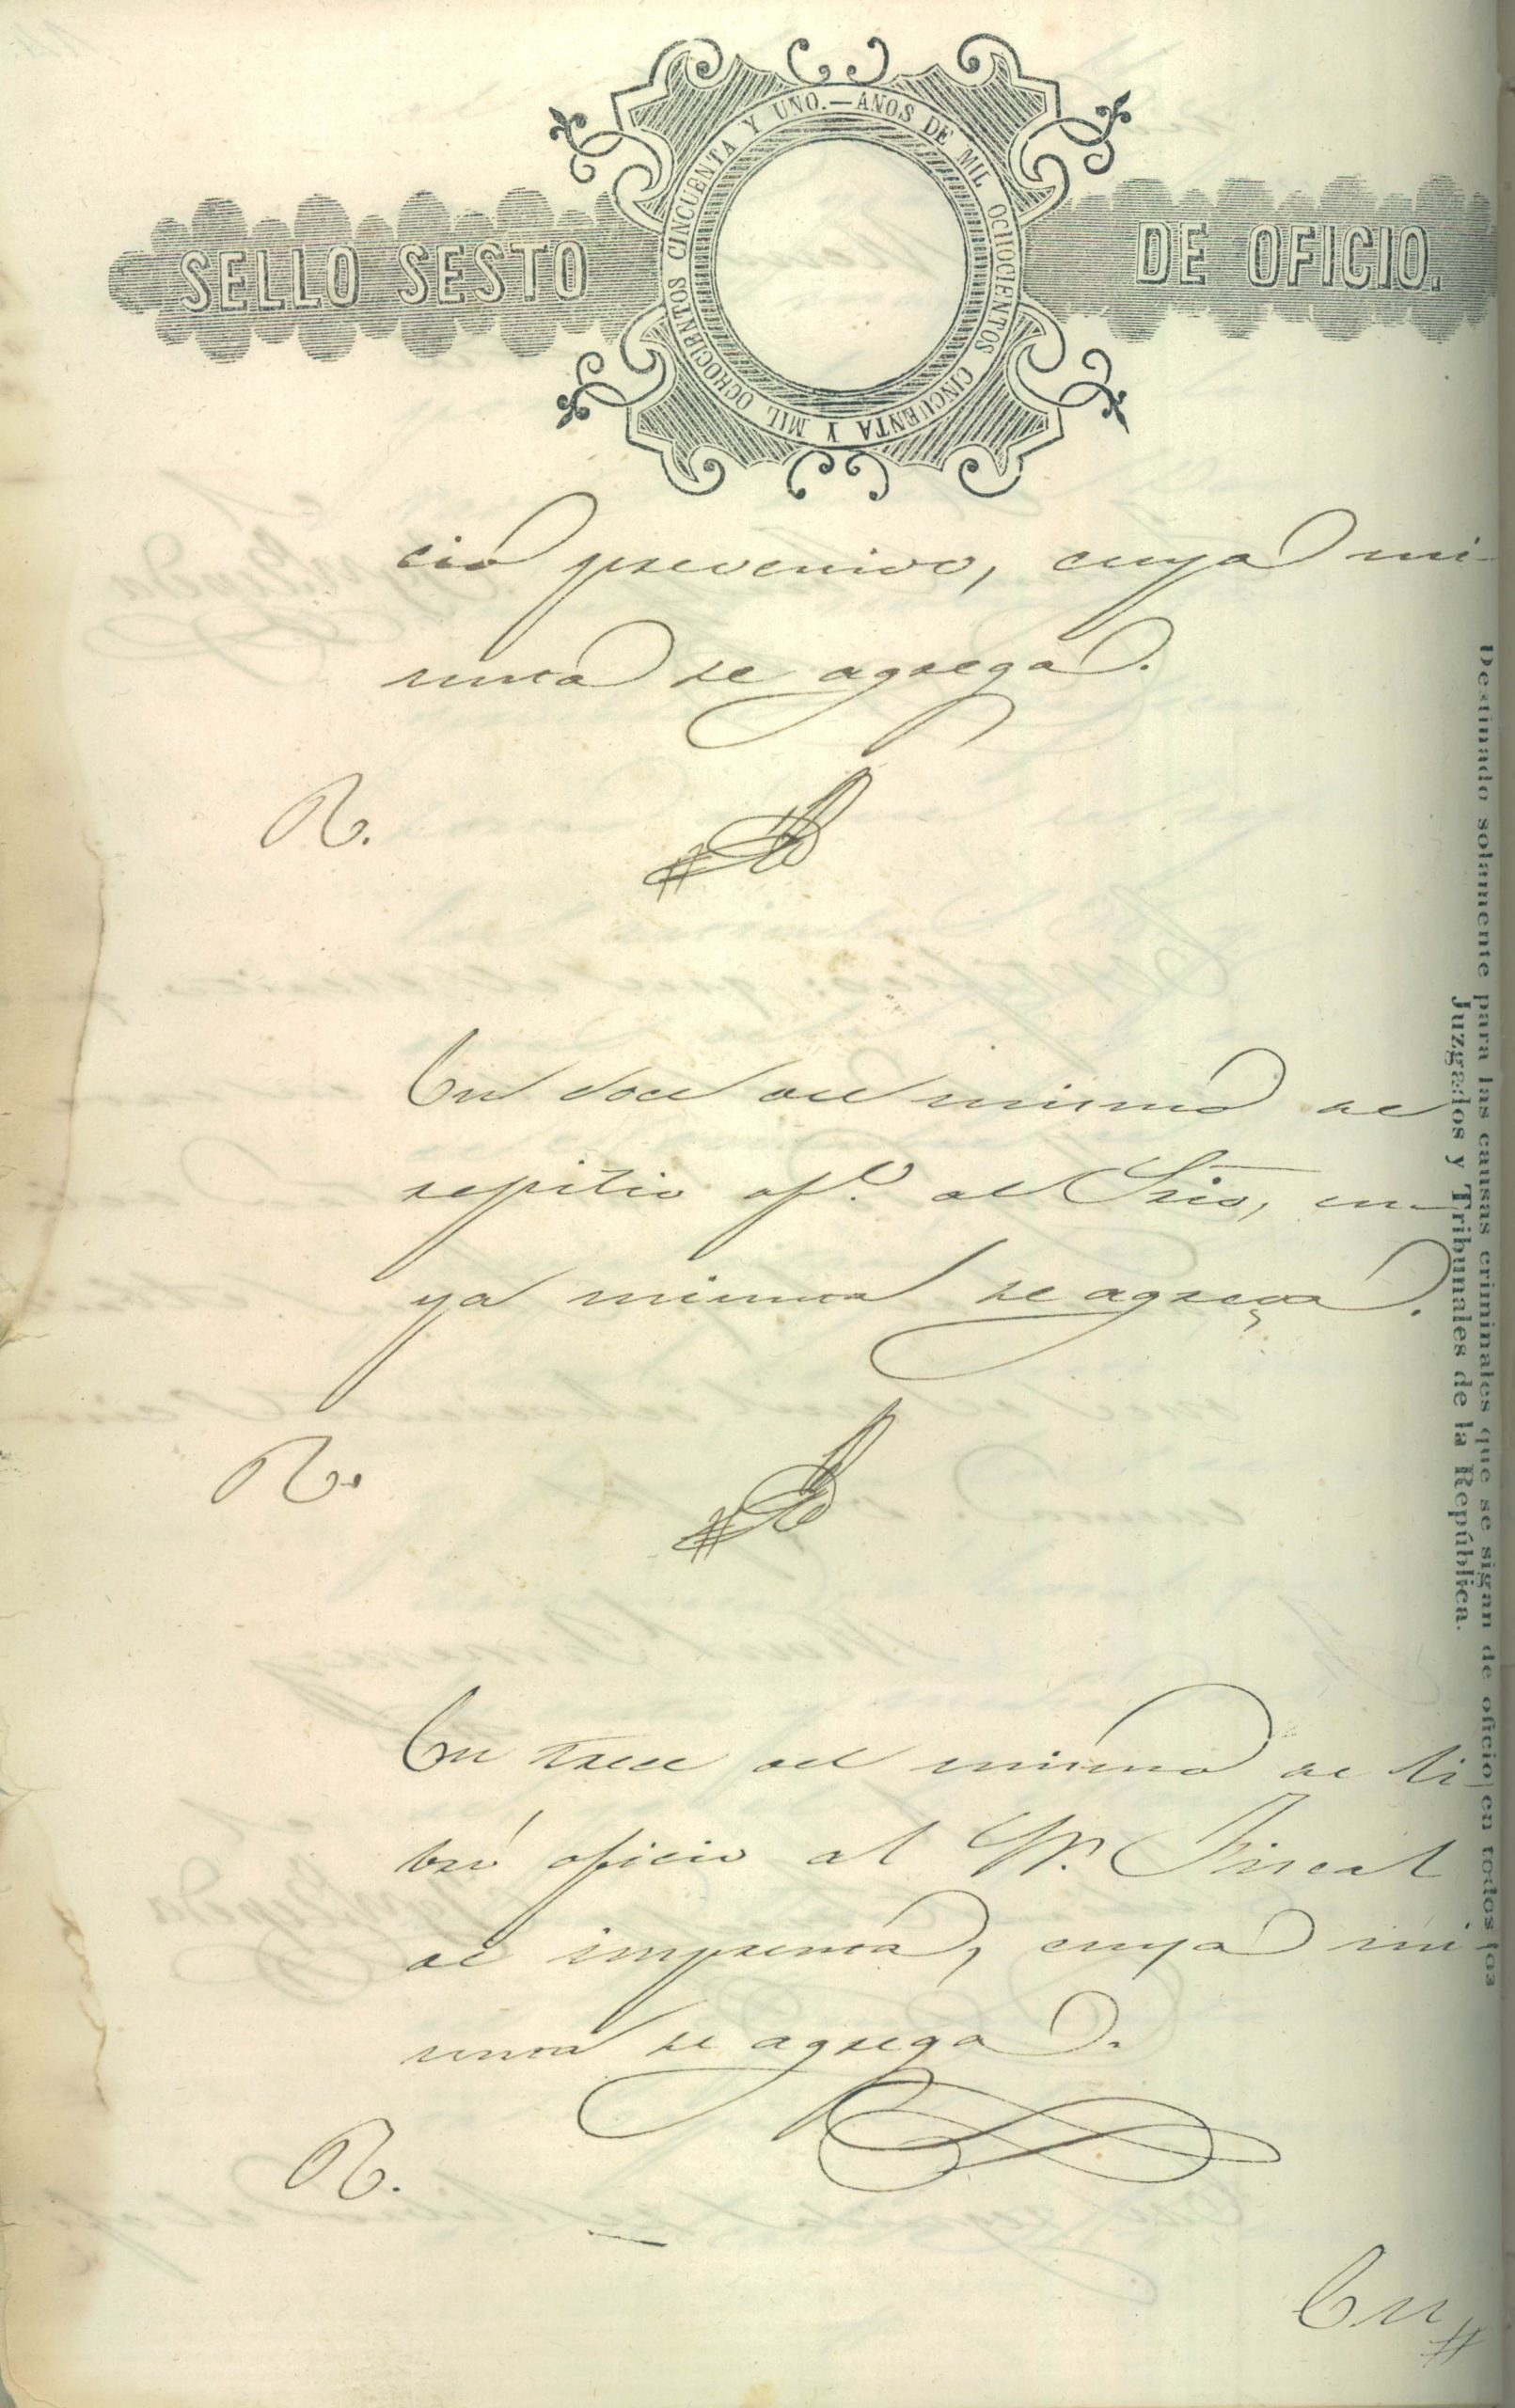 SELLO SESTO DE OFICIO.
AÑOS DE MIL OCHOCIENTOS CINCUENTA Y MIL OCHOCIENTOS CINCUENTA Y UNO.—
cio prevenido, cuya mi-
nuta se agrega.
R.
En doce del mismo se
repitio ofº. al Srio, cu-
ya minuta se agrega.
R.
En trece del mismo se li-
bró oficio al Sr. Fiscal
de imprenta, cuya mi
nuta se agrega.
R.
En
Destinado solamente para las causas criminales que se sigan de oficio en todos los
Juzgados y Tribunales de la República.